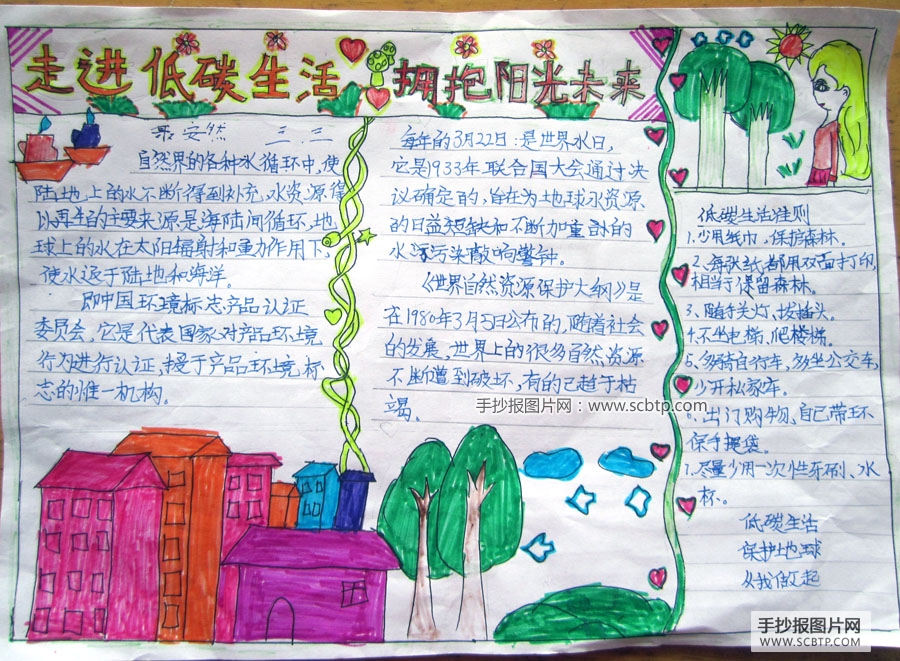 走进低碳生活 拥抱阳光未来
安然 三.三
自然界的各种水循环中,使
陆地上的水不断得到补充,水资源得
以再生的主要来源是海陆间循环,地
球上的水在太阳辐射和重力作用下,
使水运于陆地和海洋。
即中国环境标志产品认证
委员会,它是代表国家对产品环境
行为进行认证,授于产品环境标
志的惟一机构。
每年的3月22日:是世界水日,
它是1933年联合国大会通过决
议确定的,旨在为地球水资源
的日益短缺和不断加重的
水污染敲响警钟。
《世界自然资源保护大纲》是
在1980年3月5日公布的,随着社会
的发展,世界上的很多自然资源
不断遭到破坏,有的已趋于枯
竭。
手抄报图片网:www.scbtp.com
低碳生活准则
1.少用纸巾,保护森林。
2、每张纸都用双面打印,
相当于保留森林。
3、随手关灯,拔插头。
4.不坐电梯,爬楼梯。
5、多骑自行车,多坐公交车,
少开私家车。
6.出门购物,自己带环
保手提袋。
7.尽量少用一次性牙刷、水
杯。
低碳生活
保护地球
从我做起
手抄报图片网
WWW.SCBTP.COM